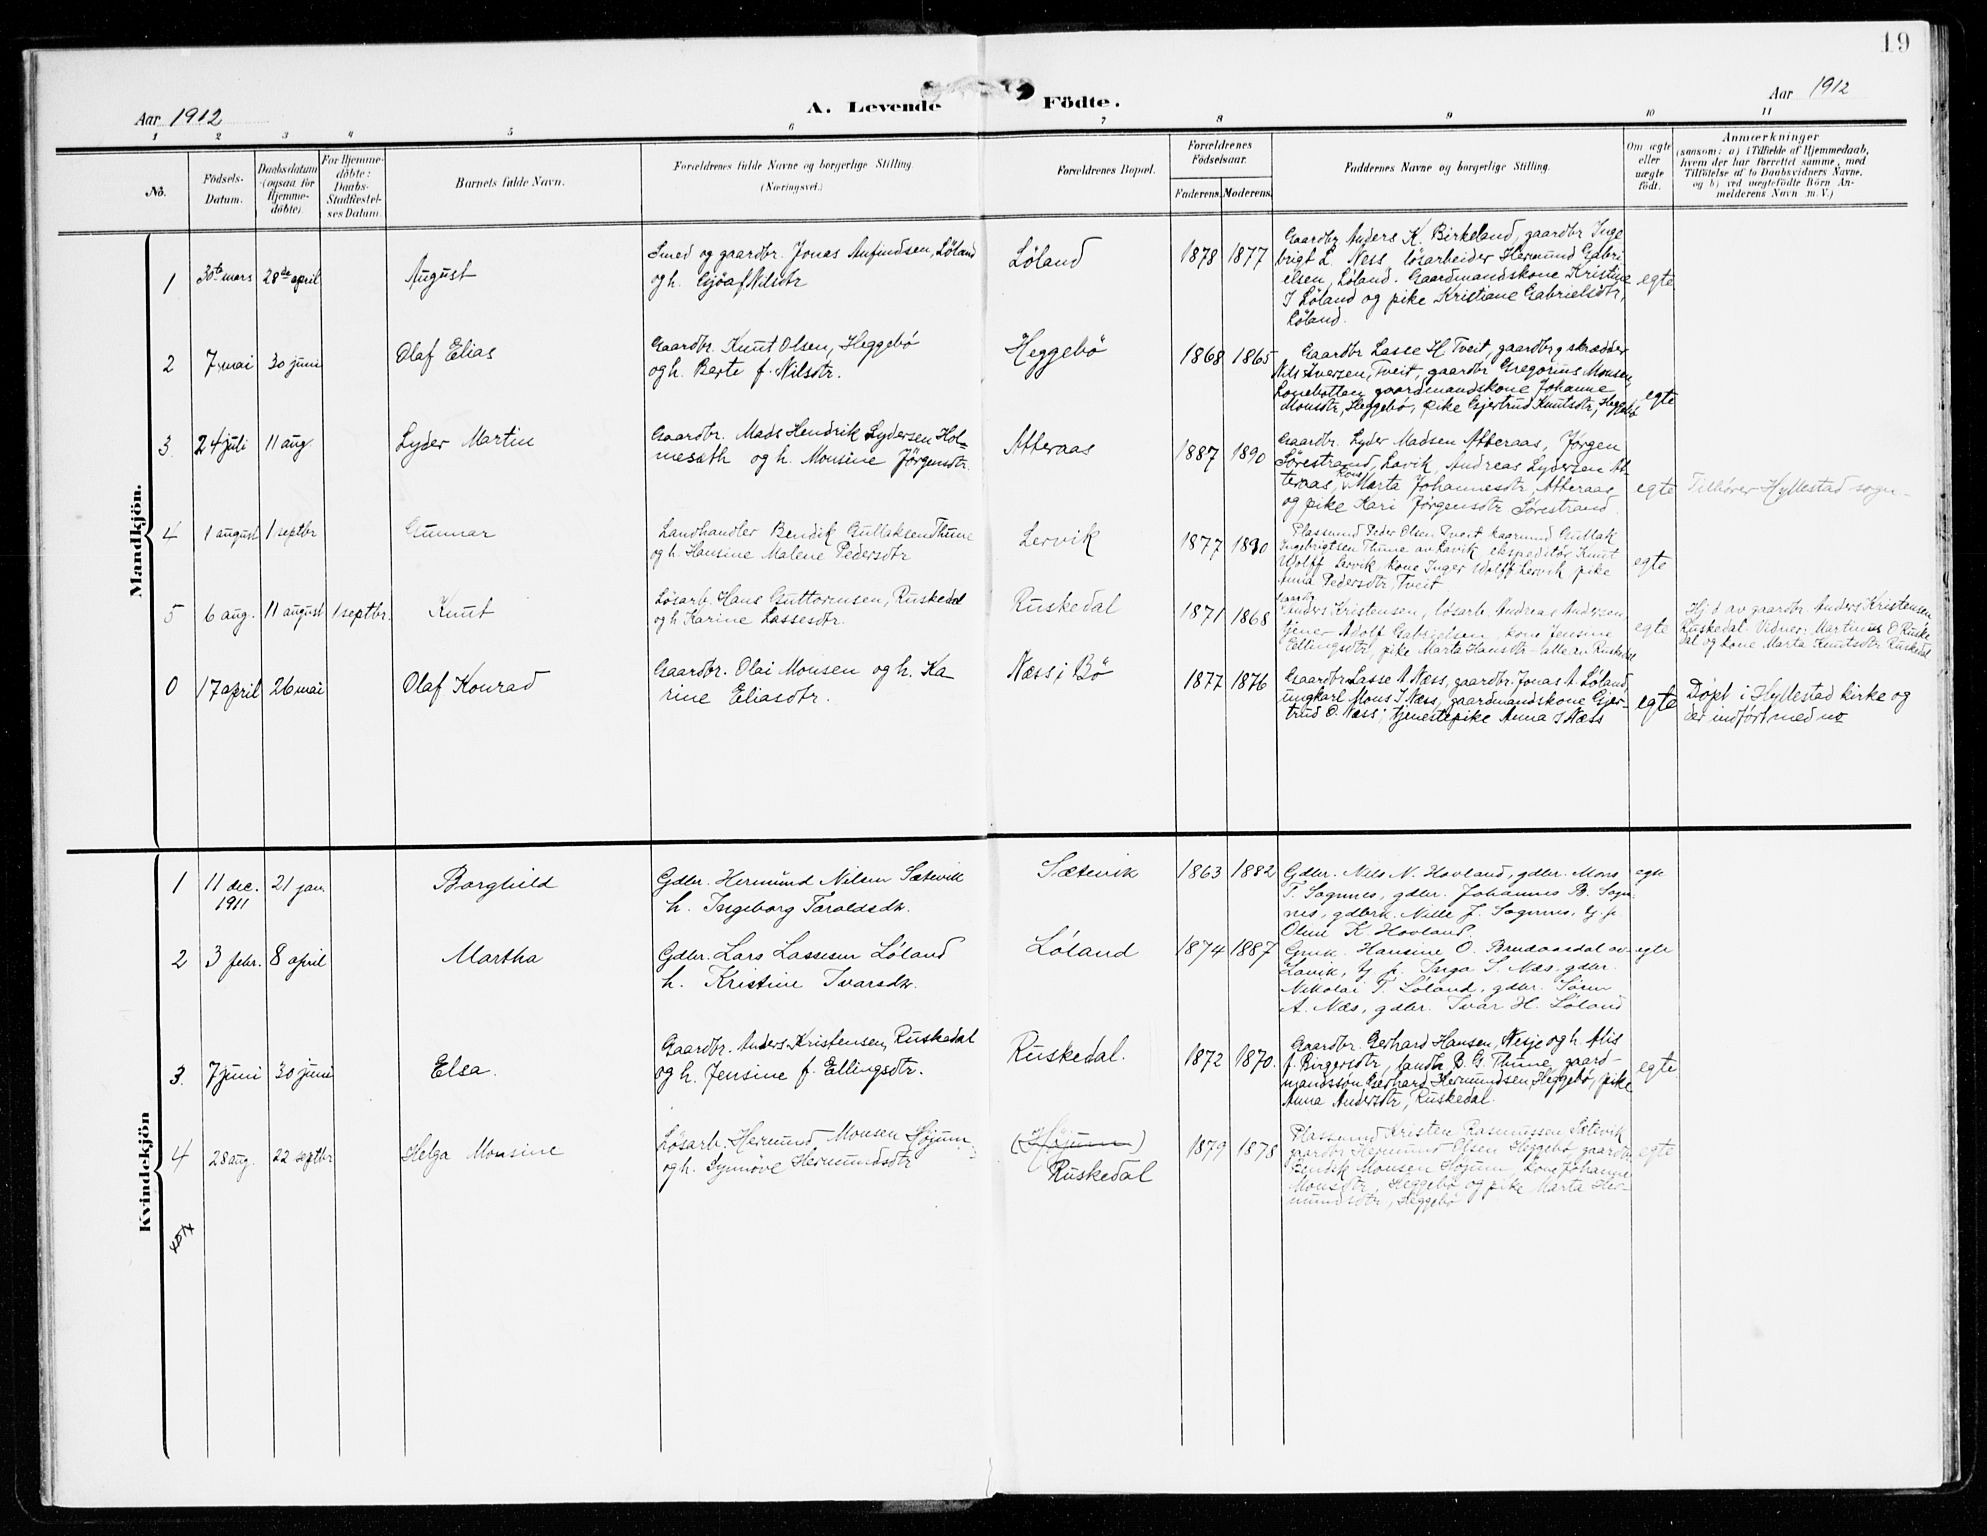 19
Aar 1912
A. Levende Födte.
Aar 1912
1 2 3 4 5 6 7 8 9 10 11
No.
Födsels-Datum.
Daabsdatum (ogsaa for Hjemme-döbte)
For Hjemme-döbte: Daabs-Stadfestel-ses Datum.
Barnets fulde Navn.
Forældrenes fulde Navne og borgerlige Stilling
(Næringsvei.)
Forældrenes Bopæl.
Forældrenes Födselsaar.
Faderens. Moderens.
Faddernes Navne og borgerlige Stilling.
Om ægte eller uægte födt.
Anmærkninger
(saasom: a) i Tilfælde af Hjemmedaab,
hvem der har forrettet samme, med
Tilföielse af to Daabsvidners Navne,
og b) ved uægtefödte Börn An-
melderens Navn m. V.)
Mandkjön.
1 30te mars 28de april
August
Smed og gaardbr. Jonas Anfindsen, Løland
og h. Gjøa f Nilsdtr
Løland
1878 1877
Gaardbr Anders K. Birkeland, gaardbr Inge
brigt L. Ness, løsarbeider Hermund Gabri
elsen, Løland. Gaardmandskone Kristine
I Løland og pike Kristiane Gabrielsdtr,
Løland.
egte
2 7 mai 30 juni
Olaf Elias
Gaardbr. Knut Olsen, Heggebø
og h. Berte f. Nilsdtr.
Heggebö
1868 1865
Gaardbr Lasse H Tveit, gaardbr g skrædder
Nils Iversen, Tveit, gaardbr Gregorius Monsen,
Lonebotten gaardmandskone Johanne
Monsdtr, Heggebø, pike Gjertrud Knutsdtr, Heggebø
egte
3. 24 juli 11 aug.
Lyder Martin
Gaardbr. Mads Hendrik Lydersen Hol-
mesæth og h. Monsine Jörgensdtr.
Atteraas
1887 1890
Gaardbr. Lyder Madsen Atteraas, Jørgen
Sørestrand, Lavik, Andreas Lydersen At-
teraas, kone Marta Johannesdtr, Atteraas
og pike Kari Jørgensdtr Sørestrand.
egte
Tilhører Hyllestad sogn-
4 1 august 1 septbr
Gunnar
Landhandler Bendik Gullaksen Thune
og h. Hansine Malene Pedersdtr
Lervik
1877 1890
Plassmd Peder Olsen Tveit kaarmnd Gullak
Ingebrigtsen Thune av Lavik, ekspeditör Knut
Wolff Lervik, kone Inger Wolff Lervik pike
Anna Pedersdtr, Tveit
egte
5 6 aug. 11 august 1 septbr.
Knut
Løsarb. Hans Guttormsen, Ruskedal
og h Karine Lassesdtr.
Ruskedal
1871 1868
Gaardbr
Anders Kristensen, løsarb. Andreas Andersen
tjener Adolf Gabrielsen, kone Jensine
Ellingsdtr, pike Marta Hansdtr - alle av Ruskedal
egte
Hj d av gaardbr Anders Kristensen
Ruskedal. Vidner: Martinus O Ruske
dal og kone Marta Knutsdtr Ruskedal
0 17 april 26 mai
Olaf Konrad
Gaardbr. Olai Monsen og h. Ka
rine Eliasdtr.
Næss i Bö
1877 1876
Gaardbr Lasse A Næss, gaardbr. Jonas A Løland,
ungkarl Mons I Næss, gaardmandskone Gjer-
trud O. Næss, tjenestepike Anna I Næss
egte
Døpt i Hyllestad kirke og
der indført med no
Kvindekjön
1 11 dec. 1911 21 jan.
Borghild
Gdbr. Hermund Nilsen Sætevik
h. Ingeborg Taraldsdtr.
Sætevik
1863 1882
Gdbr. Nils N. Hovland, gdbr. Mons
T. Sognnes, gdbr. Johannes B. Sogn
nes, gdbrk. Nille J. Sognnes, tj. p.
Oline K. Hovland.
egte
2 3 febr. 8 april
Martha
Gdbr. Lars Lassesen Løland
h. Kristine Ivarsdtr.
Løland
1874 1887
Gmk. Hansine O. Brudaasdal av
Lavik, tj. p. Inga S. Næs, gdbr.
Nikolai T. Løland, gdbr. Sören
A. Næs, gdbr. Ivar H. Løland
egte
3. 7 juni 30 juni
Elsa.
Gaardbr. Anders Kristensen, Ruskedal
og h. Jensine f. Ellingsdtr.
Ruskedal.
1872 1870.
Gaardbr. Gerhard Hansen, Nesje og h. Alis
f. Birgersdtr, landh. B. G. Thune, gaard-
mandssøn Gerhard Hermundsen, Heggebø, pike
Anna Andersdtr, Ruskedal.
egte.
4 28 aug. 22 septbr
Helga Monsine
Løsarb. Hermund Monsen Højum
og h. Synnøve Hermundsdtr
(Højum)
Ruskedal
1879 1878
Plassmd Kristen Rasmussen Sætevik
gaardbr Hermund Olsen Heggebø gaardbr
Bendik Monsen Højum, kone Johanne
Monsdtr, Heggebø og pike Marta Her-
mundsdtr, Heggebø
egte